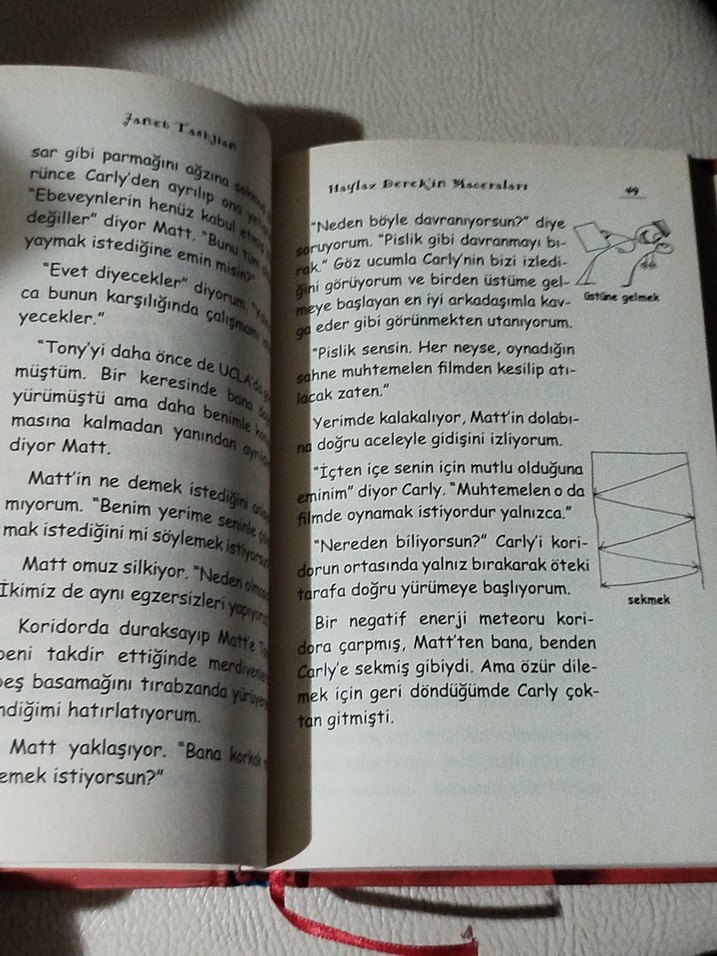 Janet Tashjian
sar gibi parmağını ağzına
rünce Carly'den ayrılıp ona
"Ebeveynlerin henüz kabul etmiş
değiller" diyor Matt. "Bunu tüm
yaymak istediğine emin misin?"
"Evet diyecekler" diyorum.
ca bunun karşılığında çalışmamı
yecekler."
"Tony'yi daha önce de UCLA'da
müştüm. Bir keresinde bana
yürümüştü ama daha benimle
masına kalmadan yanından
diyor Matt.
Matt'in ne demek istediğini
mıyorum. "Benim yerime seninle
mak istediğini mi söylemek istiyorsun
Matt omuz silkiyor. "Neden olmasın
İkimiz de aynı egzersizleri yapıyoruz
Koridorda duraksayıp Matt'e
beni takdir ettiğinde merdivenlerin
beş basamağını tırabzanda
ndiğimi hatırlatıyorum.
Matt yaklaşıyor. "Bana korkak
emek istiyorsun?"
Haylaz Derek'in Maceraları 49
"Neden böyle davranıyorsun?" diye
soruyorum. "Pislik gibi davranmayı bı-
rak." Göz ucumla Carly'nin bizi izledi-
ğini görüyorum ve birden üstüme gel-
meye başlayan en iyi arkadaşımla kav-
ga eder gibi görünmekten utanıyorum.
üstüne gelmek
"Pislik sensin. Her neyse, oynadığın
sahne muhtemelen filmden kesilip atı-
lacak zaten."
Yerimde kalakalıyor, Matt'in dolabı-
na doğru aceleyle gidişini izliyorum.
"İçten içe senin için mutlu olduğuna
eminim" diyor Carly. "Muhtemelen o da
filmde oynamak istiyordur yalnızca."
"Nereden biliyorsun?" Carly'i kori-
dorun ortasında yalnız bırakarak öteki
tarafa doğru yürümeye başlıyorum.
sekmek
Bir negatif enerji meteoru kori-
dora çarpmış, Matt'ten bana, benden
Carly'e sekmiş gibiydi. Ama özür dile-
mek için geri döndüğümde Carly çok-
tan gitmişti.